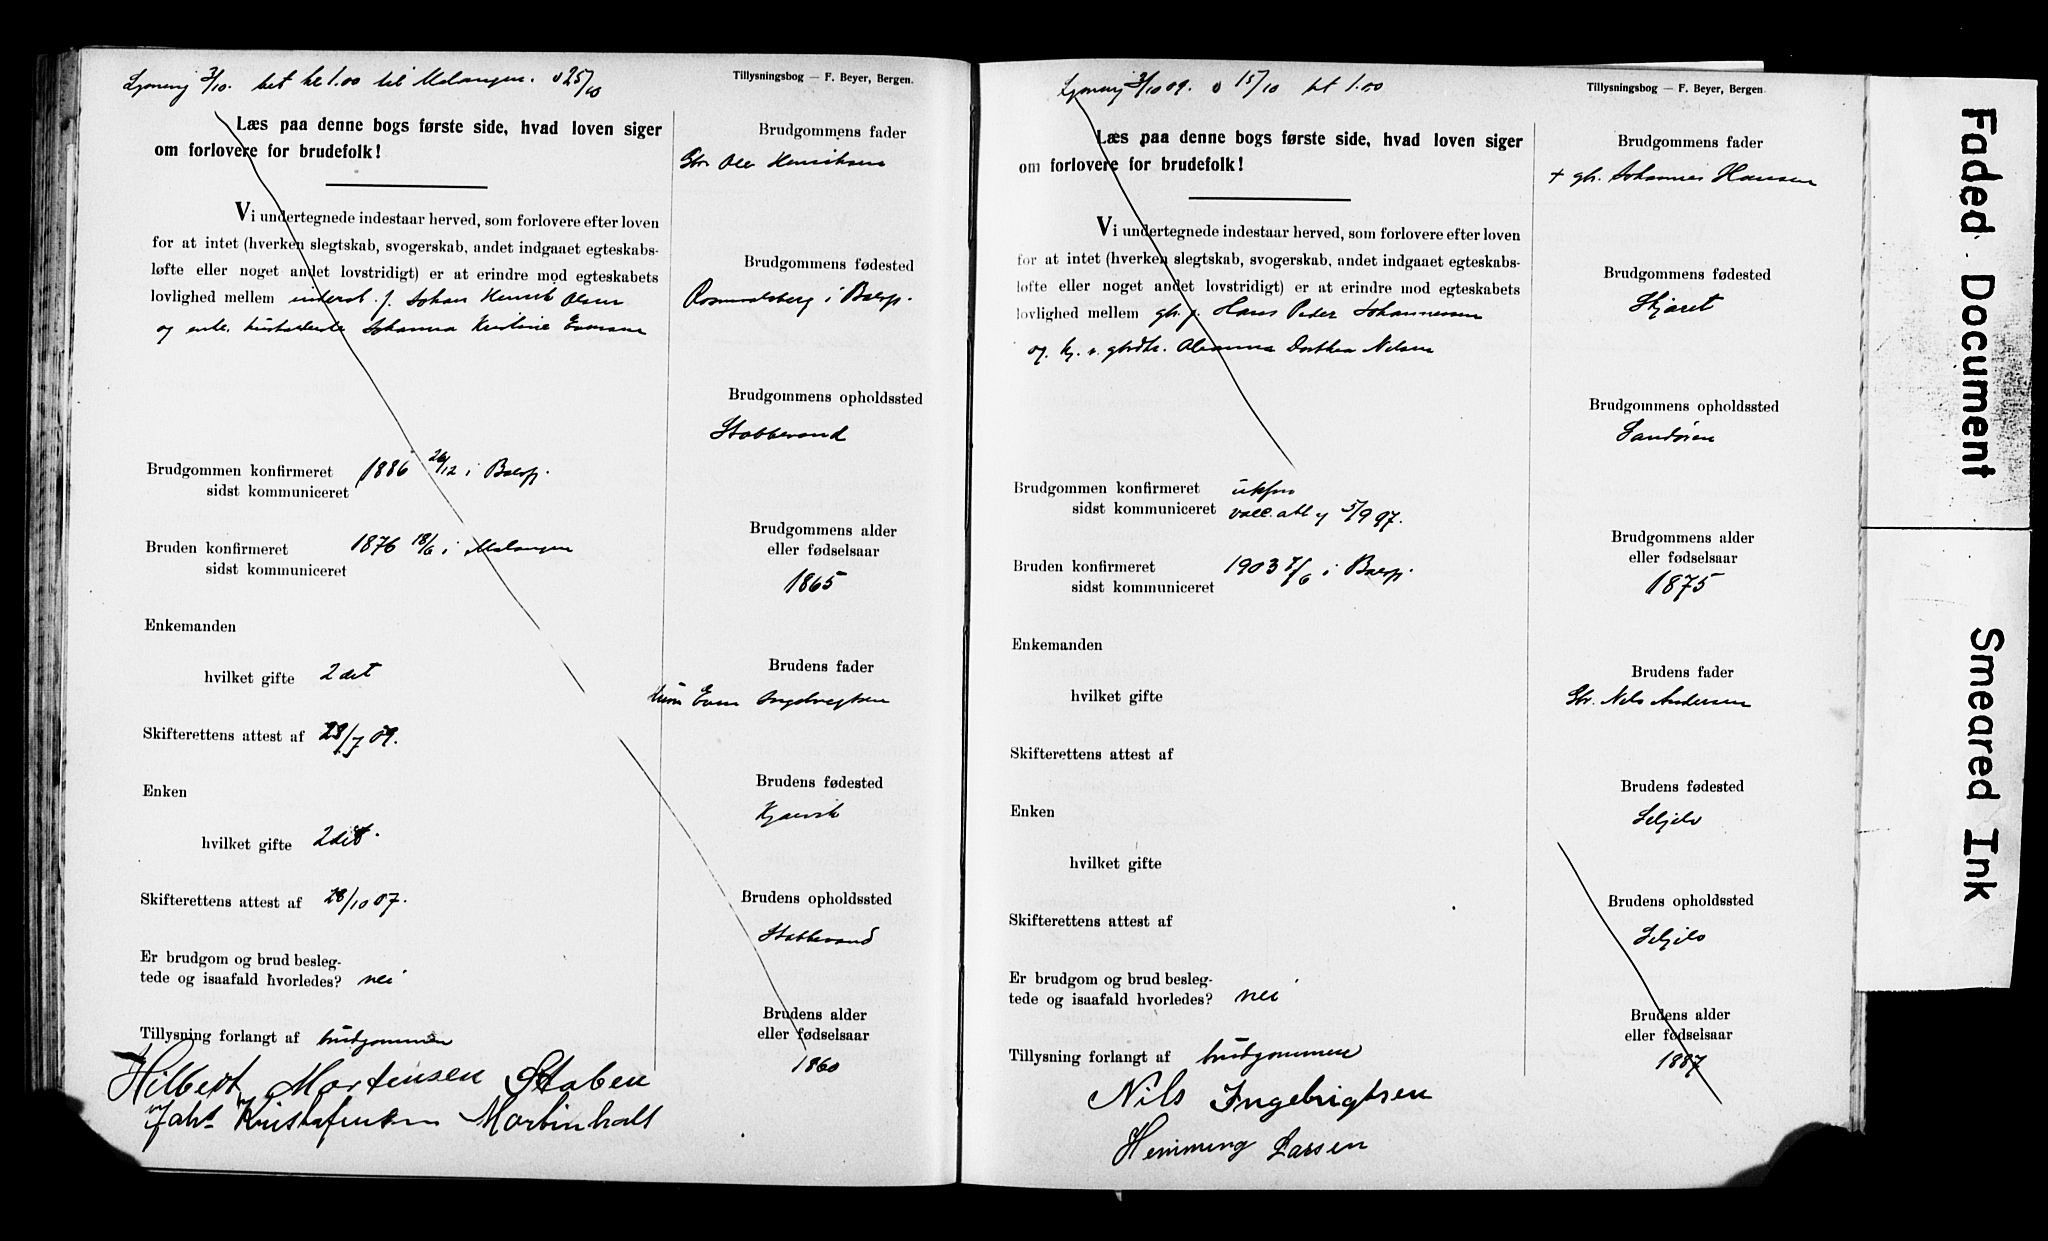 Lysning 3/10. bet kr 1.00 til Malangen. v 25/10
Tillysningsbog — F. Beyer, Bergen.
Læs paa denne bogs første side, hvad loven siger
om forlovere for brudefolk!
Vi undertegnede indestaar herved, som forlovere efter loven
for at intet (hverken slegtskab, svogerskab, andet indgaaet egteskabs-
løfte eller noget andet lovstridigt) er at erindre mod egteskabets
lovlighed mellem inderst f. Johan Henrik Olsen
og enke Johanna Kristine Evensen
Brudgommen konfirmeret 1886 26/12 i Balsfj.
sidst kommuniceret
Bruden konfirmeret 1876 18/6 i Malangen
sidst kommuniceret
Enkemanden
hvilket gifte 2det
Skifterettens attest af 23/7 09.
Enken
hvilket gifte 2det.
Skifterettens attest af 28/10 07.
Er brudgom og brud besleg-
tede og isaafald hvorledes? nei
Tillysning forlangt af brudgommen
Hilbert Mortensen Staben
Joh. Kristofersen Martinhall
Brudgommens fader
Gbr. Ole Henriksen
Brudgommens fødested
i Balsfj.
Brudgommens opholdssted
Stobbevand
Brudgommens alder
eller fødselsaar
1865
Brudens fader
Even Ingebrigtsen
Brudens fødested
Kjærvik
Brudens opholdssted
Stobbevand
Brudens alder
eller fødselsaar
1860
Lysning 3/10 09. v 15/10 bt 1.00
Tillysningsbog — F. Beyer, Bergen.
Læs paa denne bogs første side, hvad loven siger
om forlovere for brudefolk!
Vi undertegnede indestaar herved, som forlovere efter loven
for at intet (hverken slegtskab, svogerskab, andet indgaaet egteskabs-
løfte eller noget andet lovstridigt) er at erindre mod egteskabets
lovlighed mellem gbr. f. Hans Peder Johannessen
og. Dorthea Nilsen
Brudgommen konfirmeret ukfm
sidst kommuniceret vacc. att af 5/9 97.
Bruden konfirmeret 1903 7/6 i Balsfj.
sidst kommuniceret
Enkemanden
hvilket gifte
Skifterettens attest af
Enken
hvilket gifte
Skifterettens attest af
Er brudgom og brud besleg-
tede og isaafald hvorledes? nei
Tillysning forlangt af brudgommen
Nils Ingebrigtsen
Hemming Larsen
Brudgommens fader
+ gbr. Johannes Hansen
Brudgommens fødested
Skjæret
Brudgommens opholdssted
Sandøren
Brudgommens alder
eller fødselsaar
1875
Brudens fader
Gbr. Nils Andersen
Brudens fødested
Seljelv
Brudens opholdssted
Seljelv
Brudens alder
eller fødselsaar
1887
Faded Document
Smeared Ink